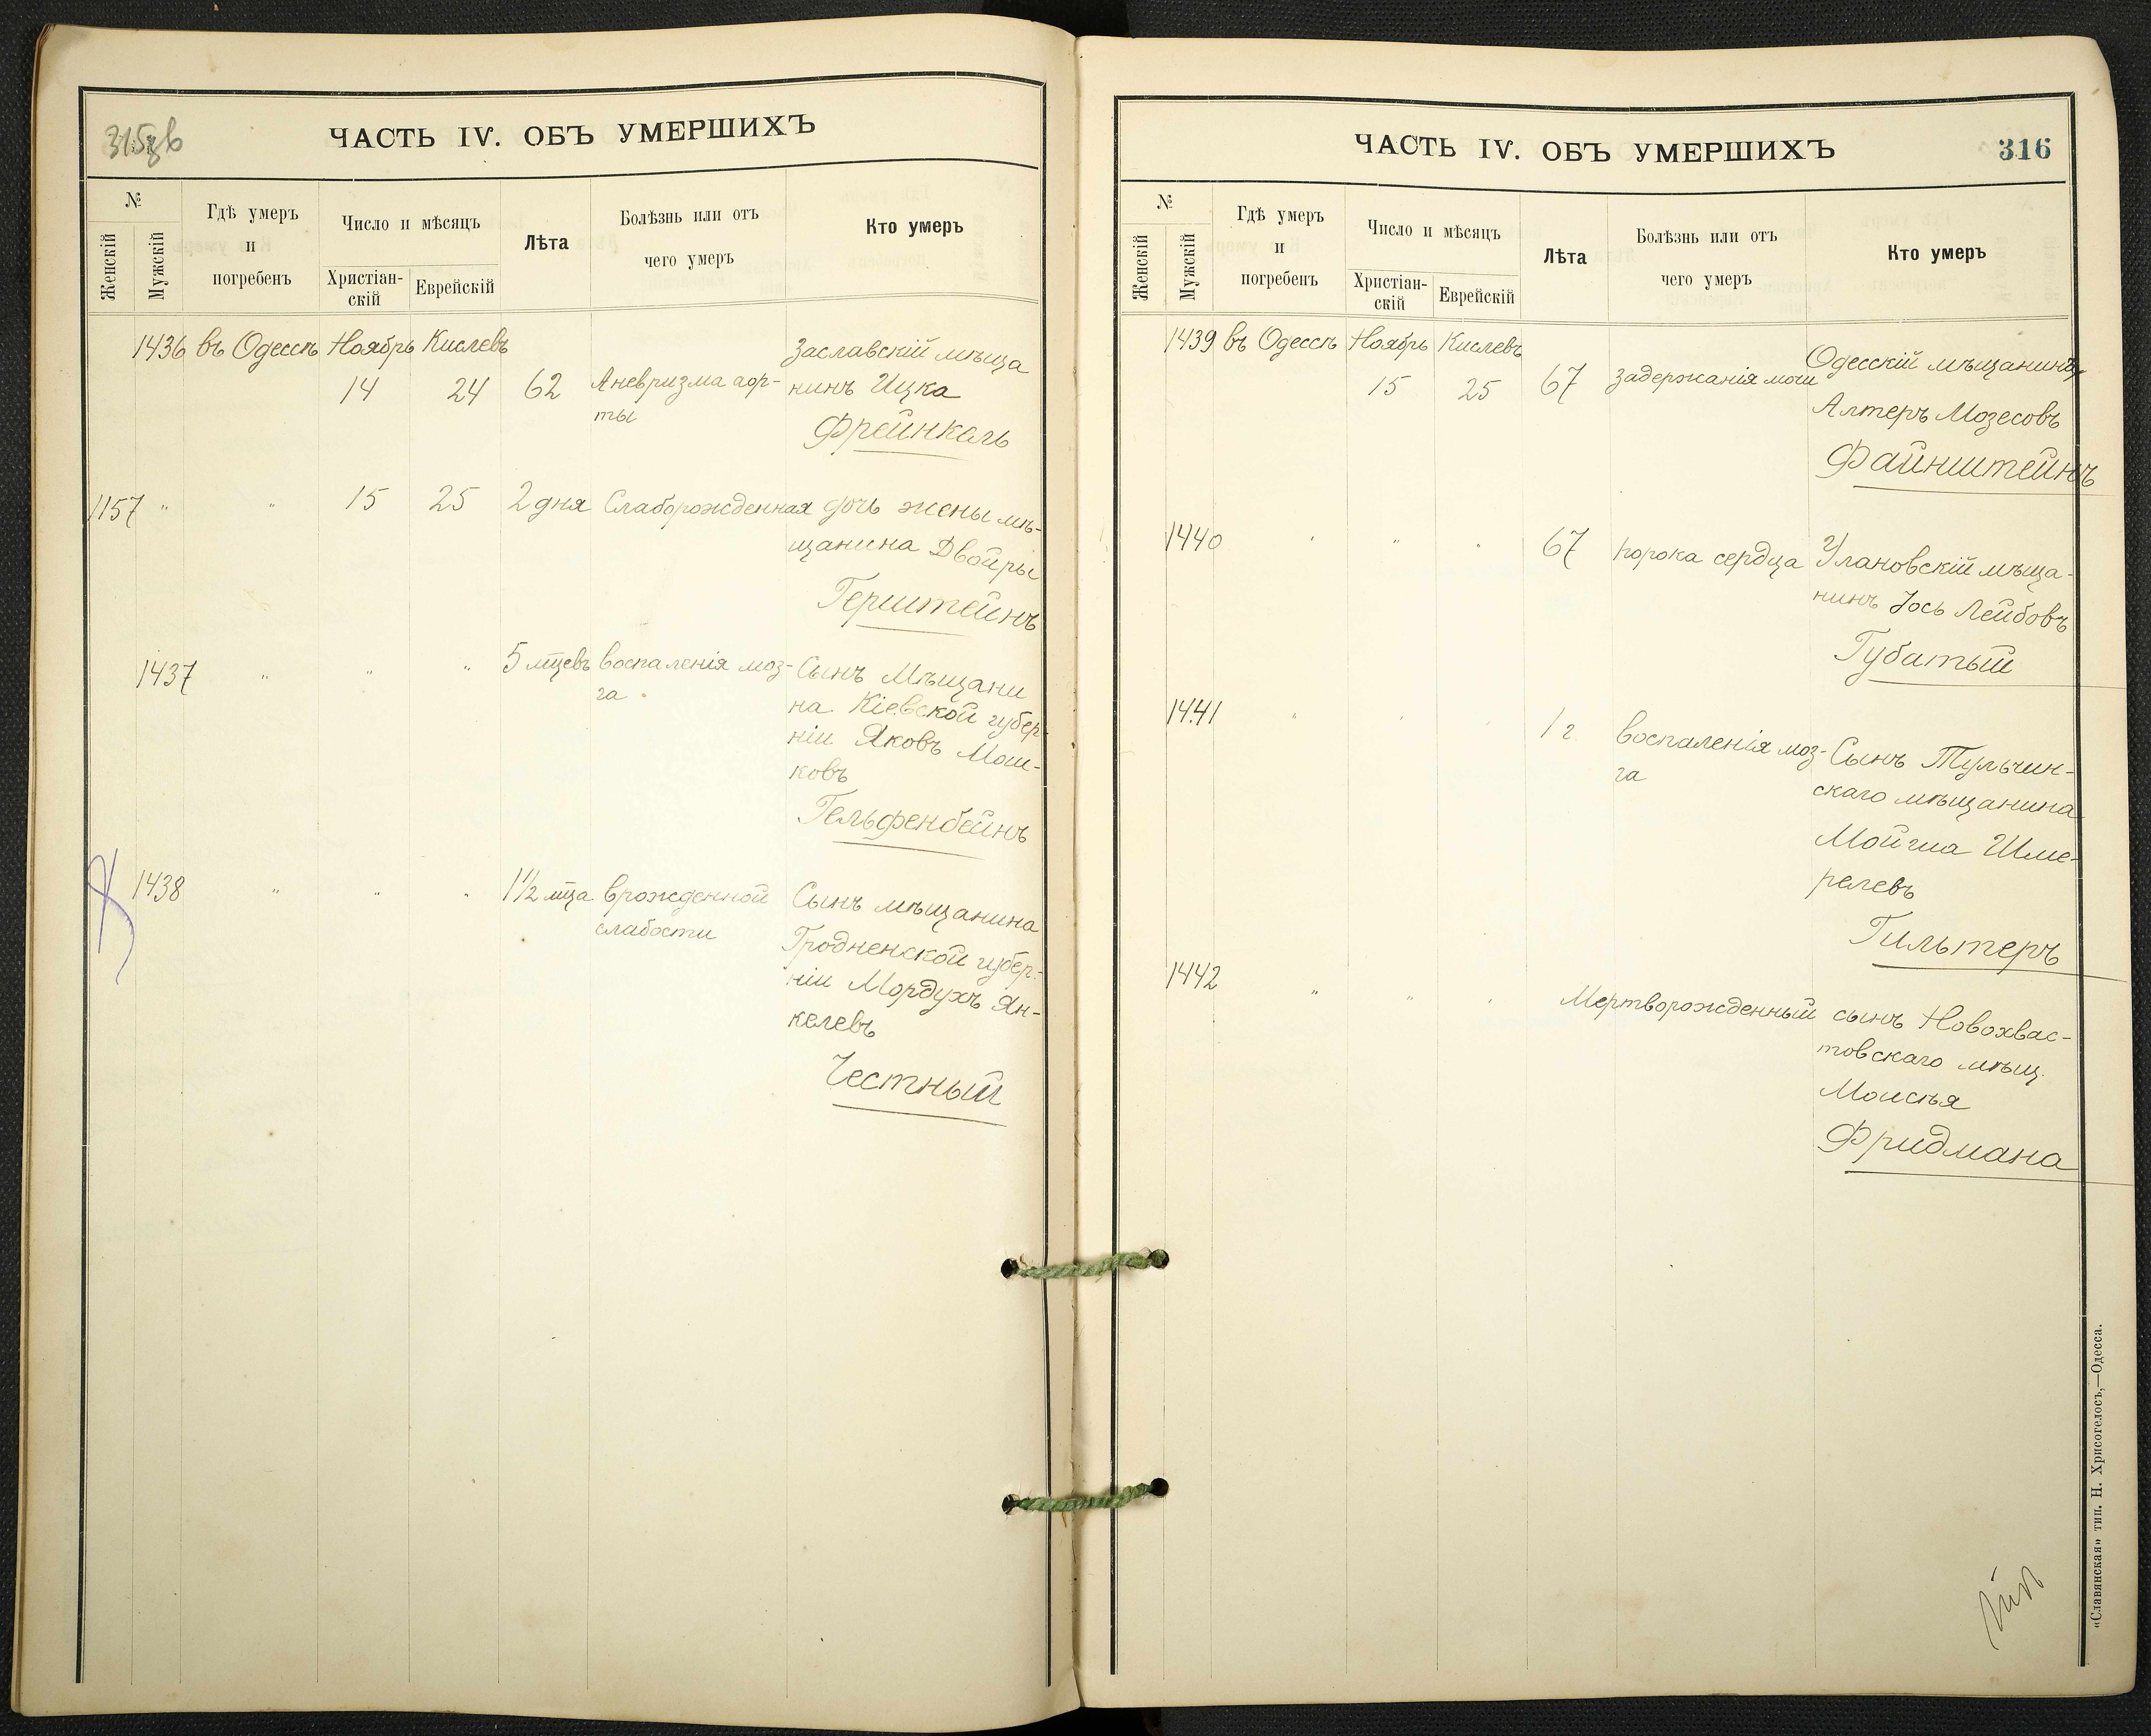 315зв
ЧАСТЬ IV. ОБЪ УМЕРШИХЪ
№
Женскій
Мужскій
Гдѣ умеръ
и
погребенъ
Число и мѣсяцъ
Христіан-
скій
Еврейскій
Лѣта
Болѣзнь или отъ
чего умеръ
Кто умеръ
1436 въ Одессѣ Ноябрь Кислевъ Заславскій мѣща
14 24 62 Аневризма аор- нинъ Ицка
ты Фрейнкель
1157 " " 15 25 2 дня Слаборожденная дочь жены мѣ-
щанина Двойры
Герштейнъ
1437 " " " 5 мцевъ воспаленія моз- Сынъ Мѣщани
га на Кіевской губер-
ніи Яковъ Мош-
ковъ
Гельфенбейнъ
1438 " " " 1½ мца врожденной Сынъ мѣщанина
слабости Гродненской губер-
ніи Мордухъ Ян-
келевъ
Честный
ЧАСТЬ IV. ОБЪ УМЕРШИХЪ
316
№
Женскій
Мужскій
Гдѣ умеръ
и
погребенъ
Число и мѣсяцъ
Христіан-
скій
Еврейскій
Лѣта
Болѣзнь или отъ
чего умеръ
Кто умеръ
1439 въ Одессѣ Ноябрь Кислевъ Одесскій мѣщанинъ
15 25 67 задержанія мочи Алтеръ Мозесовъ
Файнштейнъ
1440 " " " 67 порока сердца Улановскій мѣща-
нинъ Іось Лейбовъ
Губатый
1441 " " " 1 г воспаленія моз- Сынъ Тульчин-
га скаго мѣщанина
Мойша Шме-
релевъ
Гильтеръ
1442 " " " Мертворожденный сынъ Новохвас-
товскаго мѣщ.
Моисѣя
Фридмана
«Славянская» тип. Н. Хрисогелосъ,—Одесса.